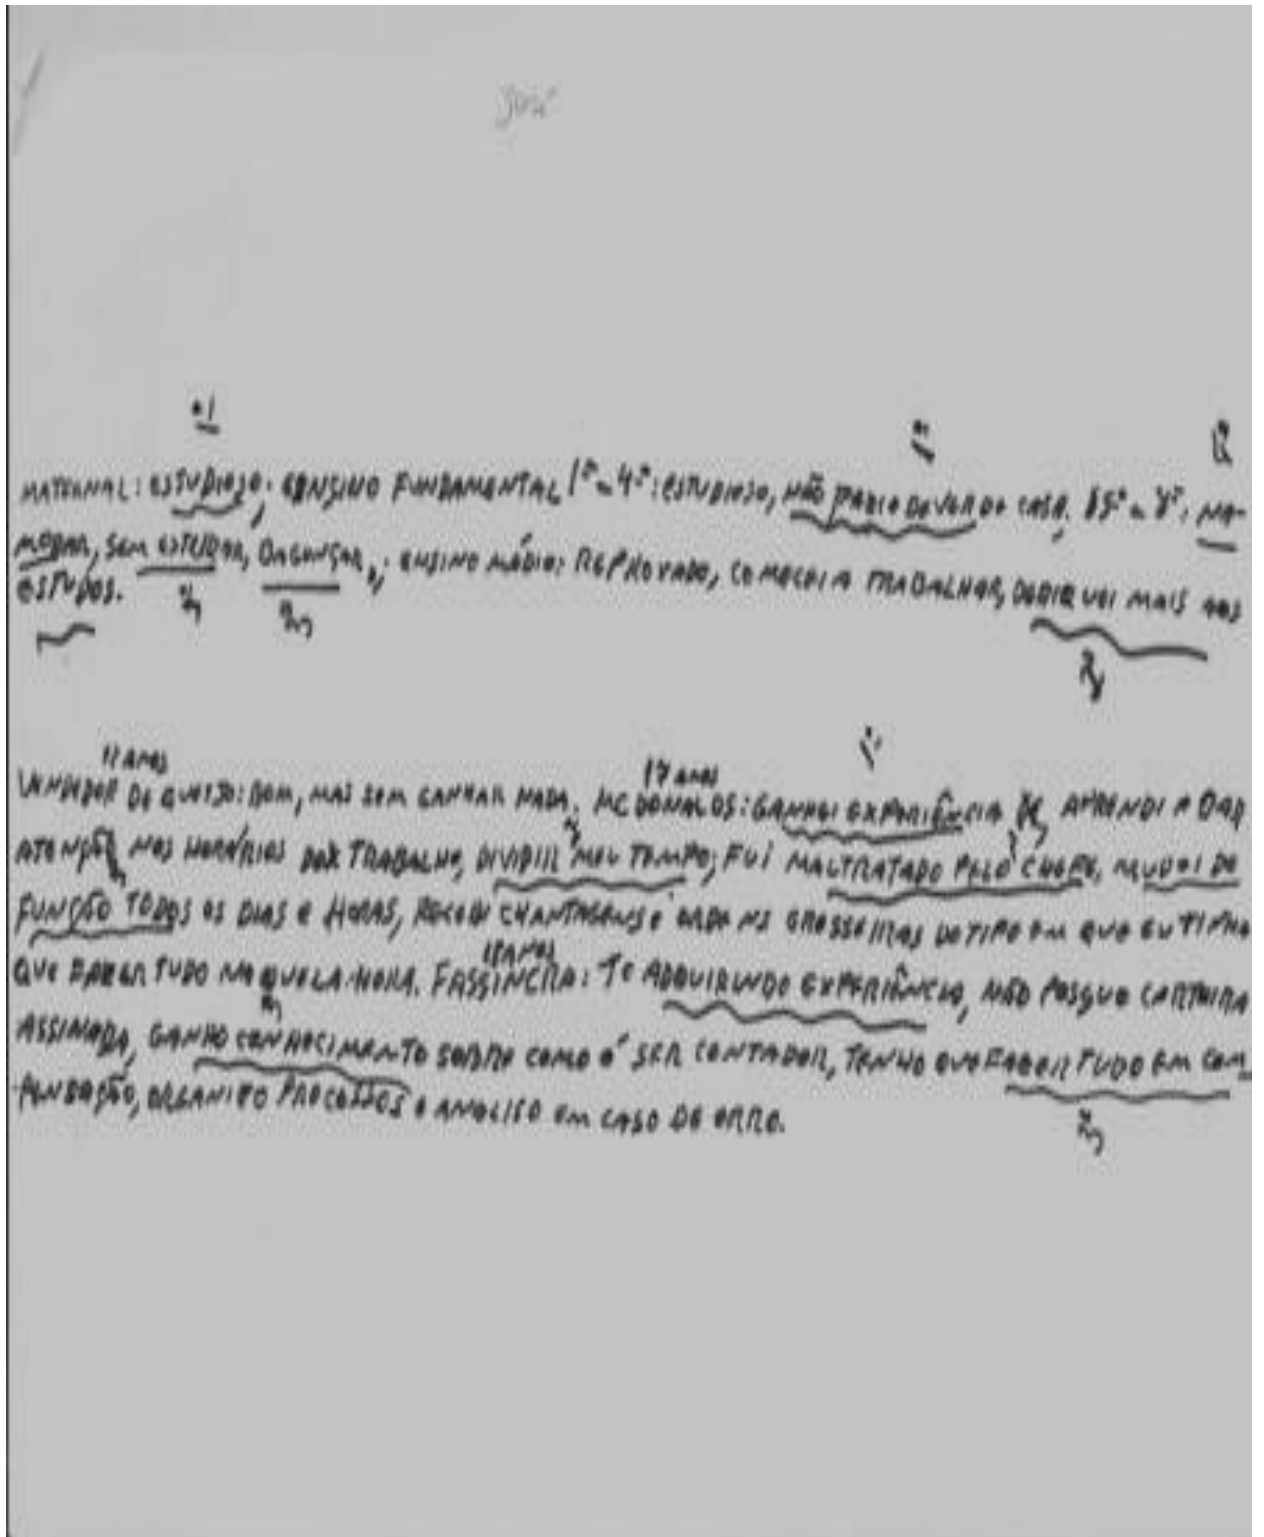 José
MATERNAL: ESTUDIOSO; ENSINO FUNDAMENTAL 1ª a 4ª: ESTUDIOSO, NÃO FAZIA DEVER DE CASA, 5ª a 8ª: NA-
MORAR, SEM ESTUDAR, BAGUNÇAR; ENSINO MÉDIO: REPROVADO, COMECEI A TRABALHAR, DEDIQUEI MAIS AOS
ESTUDOS.
11 ANOS 17 ANOS
VENDEDOR DE QUEIJO: BOM, MAS SEM GANHAR NADA; MCDONALDS: GANHEI EXPERIÊNCIA APRENDI A DAR
ATENÇÃO NOS HORÁRIOS TRABALHO, DIVIDIR MEU TEMPO, FUI MALTRATADO PELO CHEFE, MUDEI DE
FUNÇÃO TODOS OS DIAS E HORAS, RECEBI CHANTAGENS E ORDENS GROSSEIRAS DO TIPO EM QUE EU TINHA
QUE FAZER TUDO NAQUELA HORA. : TO ADQUIRINDO EXPERIÊNCIA, NÃO POSSUO CARTEIRA
ASSINADA, GANHO CONHECIMENTO SOBRE COMO É SER CONTADOR, TENHO QUE FAZER TUDO EM
ORGANIZO PROCESSOS E ANALISO EM CASO DE ERRO.